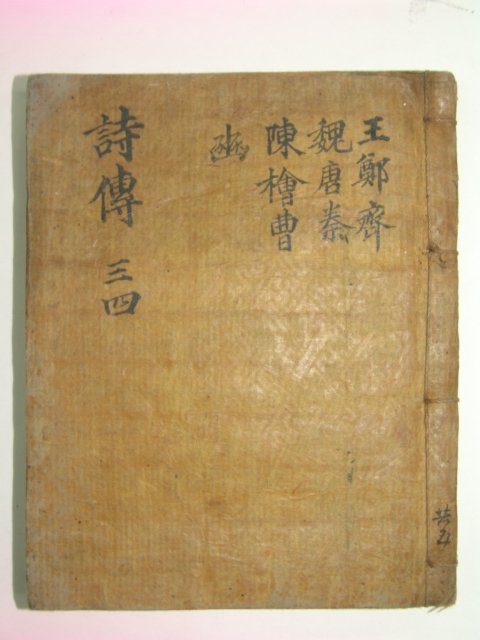 王鄭齊
魏唐秦
陳檜曹
豳
詩傳 三四
共五